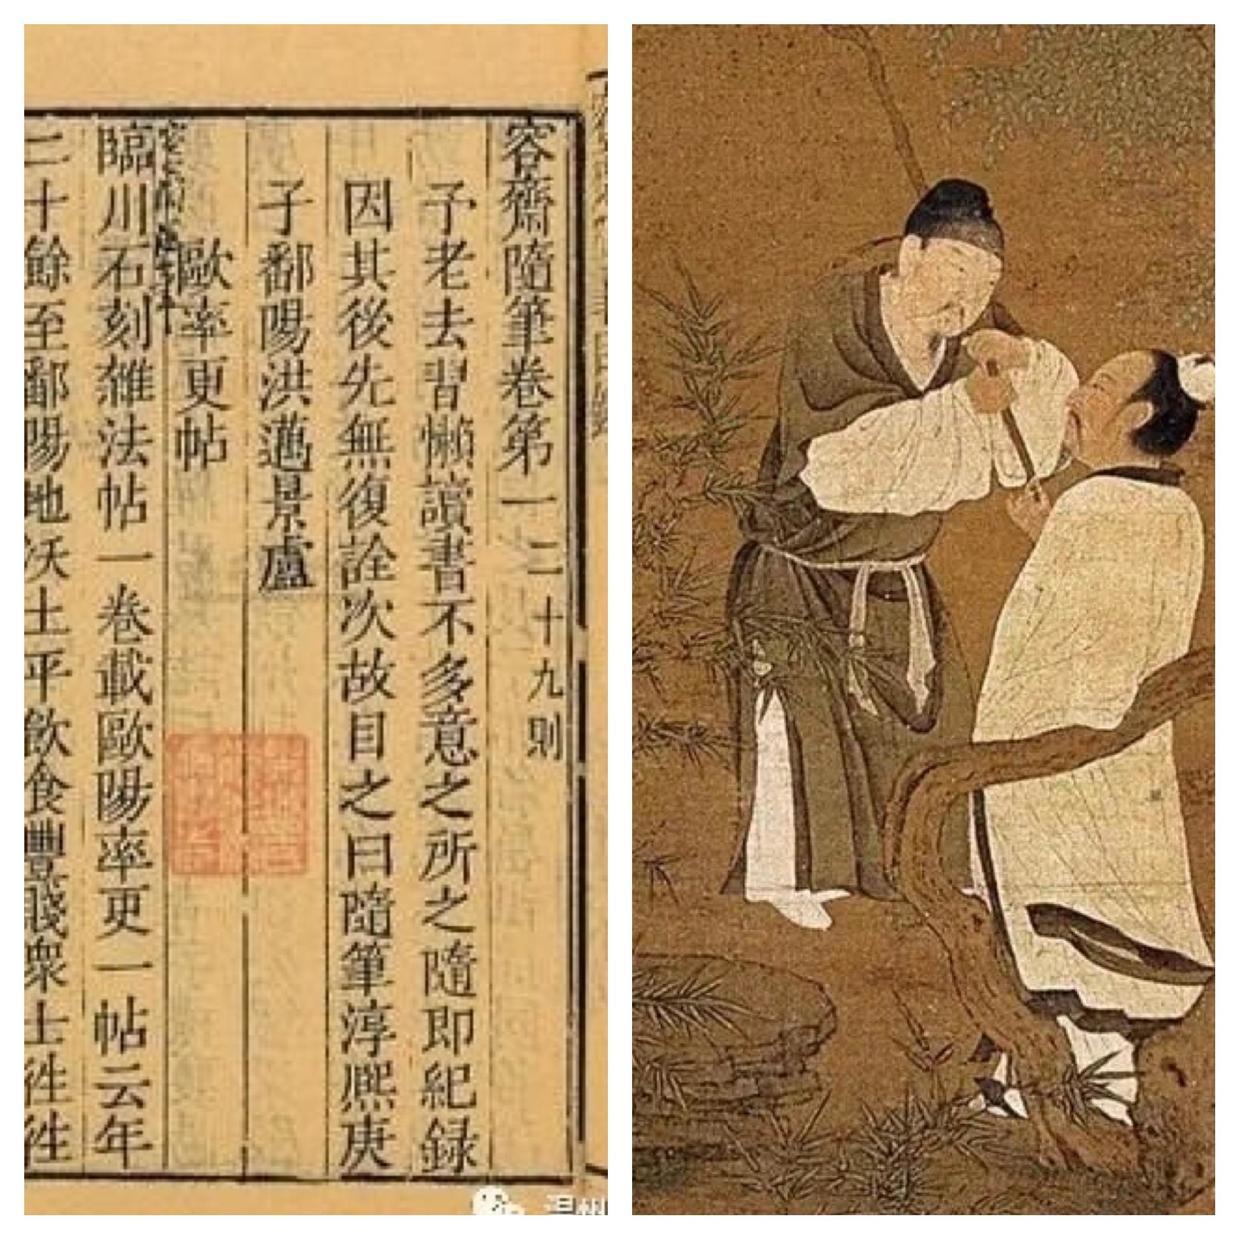 容齋隨筆卷第一 二十九則
予老去習懶讀書不多意之所之隨即紀錄
因其後先無復詮次故目之曰隨筆淳熙庚
子鄱陽洪邁景盧
歐率更帖
臨川石刻雜法帖一卷載歐陽率更一帖云年
二十餘至鄱陽地沃土平飲食豐賤衆士往往